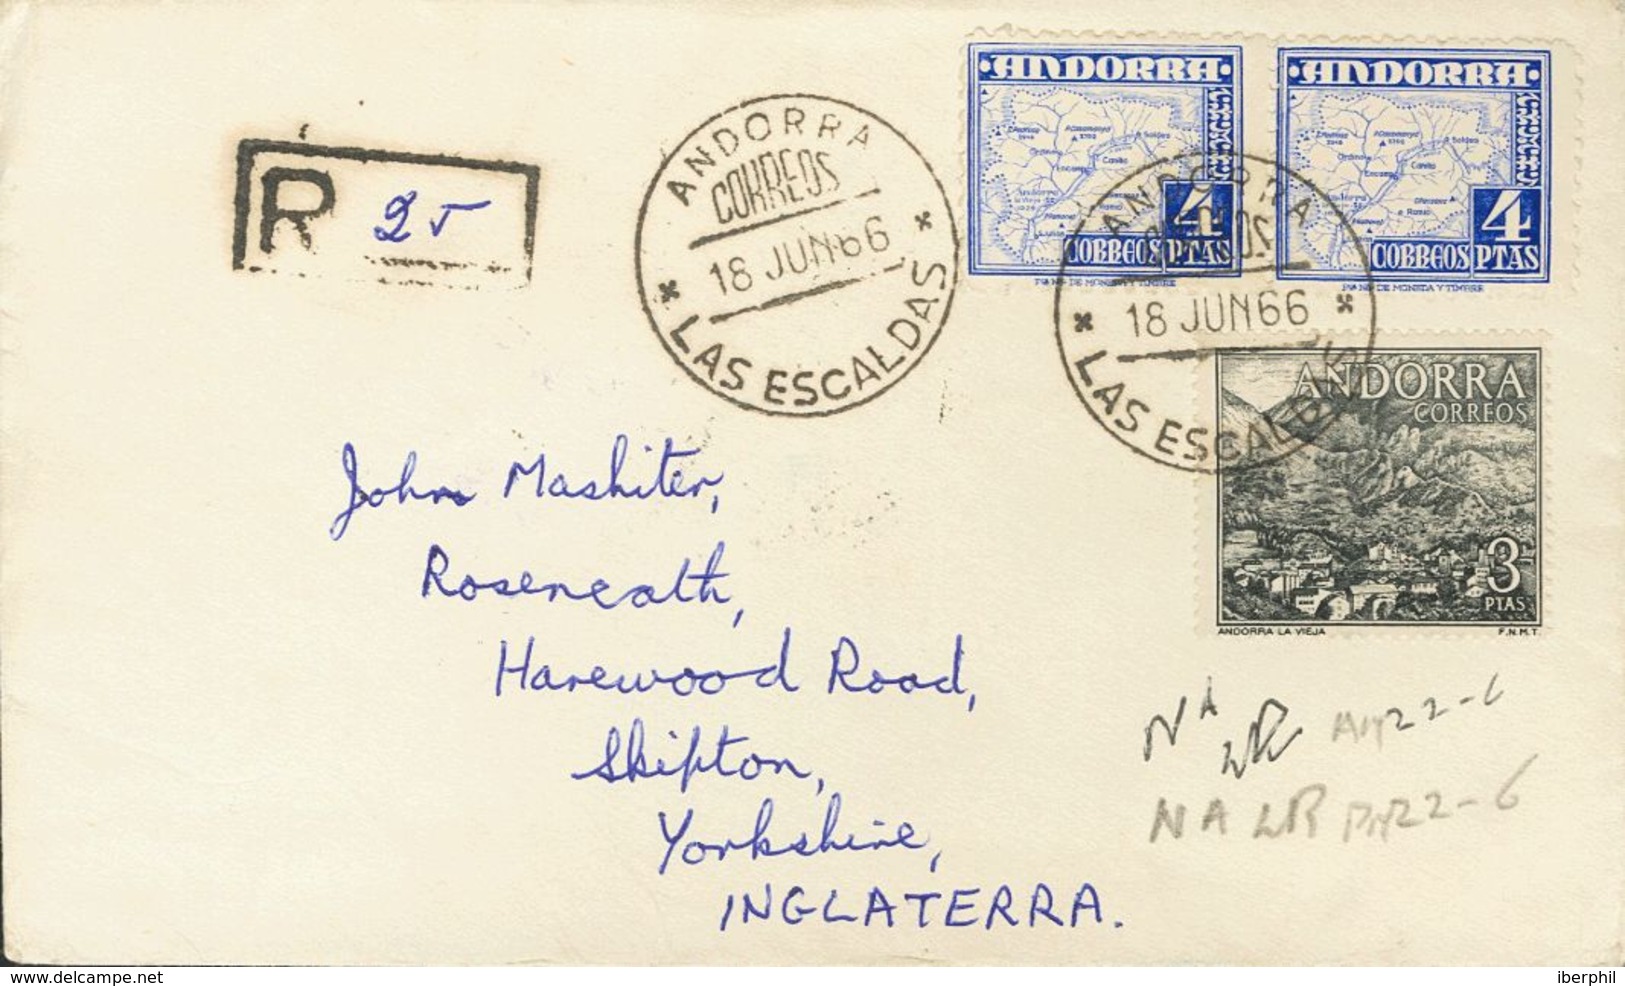 ·ANDORRA·
·ANDORRA·
4
CORREOS PTAS
4
CORREOS PTAS
Fª Nª DE MONEDA Y TIMBRE
Fª Nª DE MONEDA Y TIMBRE
R 25
ANDORRA
CORREOS
18 JUN 66
LAS ESCALDAS
ANDORRA
18 JUN 66
LAS ESCALDAS
ANDORRA
CORREOS
3
PTAS
ANDORRA LA VIEJA F.N.M.T.
John Mashiter,
Roseneath,
Harewood Road,
Skipton,
Yorkshire,
INGLATERRA.
NA 22-6
NA LR 22-6
www.delcampe.net iberphil